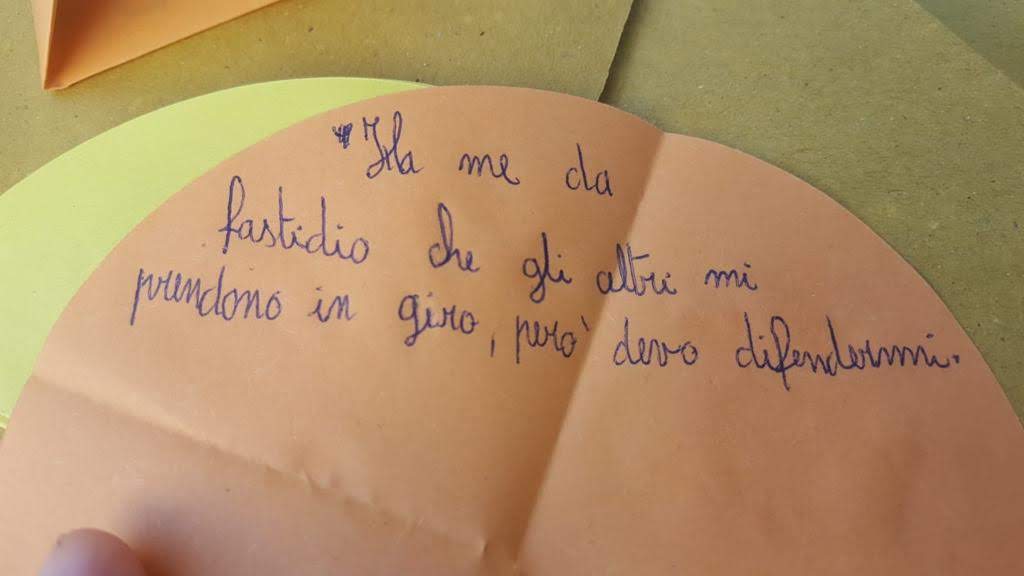 "Ha me da
fastidio che gli altri mi
prendono in giro, però devo difendermi.